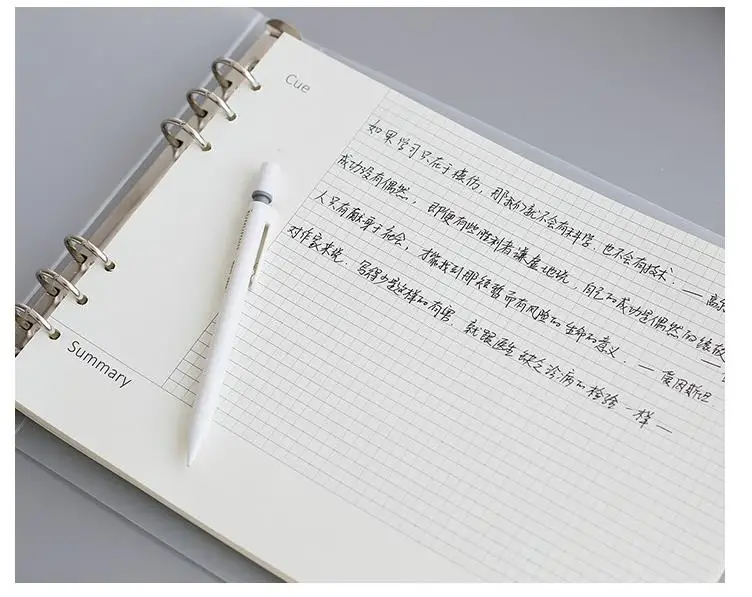 Cue
如果学习只在于模仿，那我们就不会有科学，也不会有技术．—高尔
成功没有偶然，即便有些胜利者谦虚地说，自己的成功是偶然的缘故
人只有献身于社会，才能找到那短暂而有风险的生命的意义．—爱因斯坦
对作家来说，写得少是这样的有害，就跟医生缺乏诊病的检验一样—
Summary